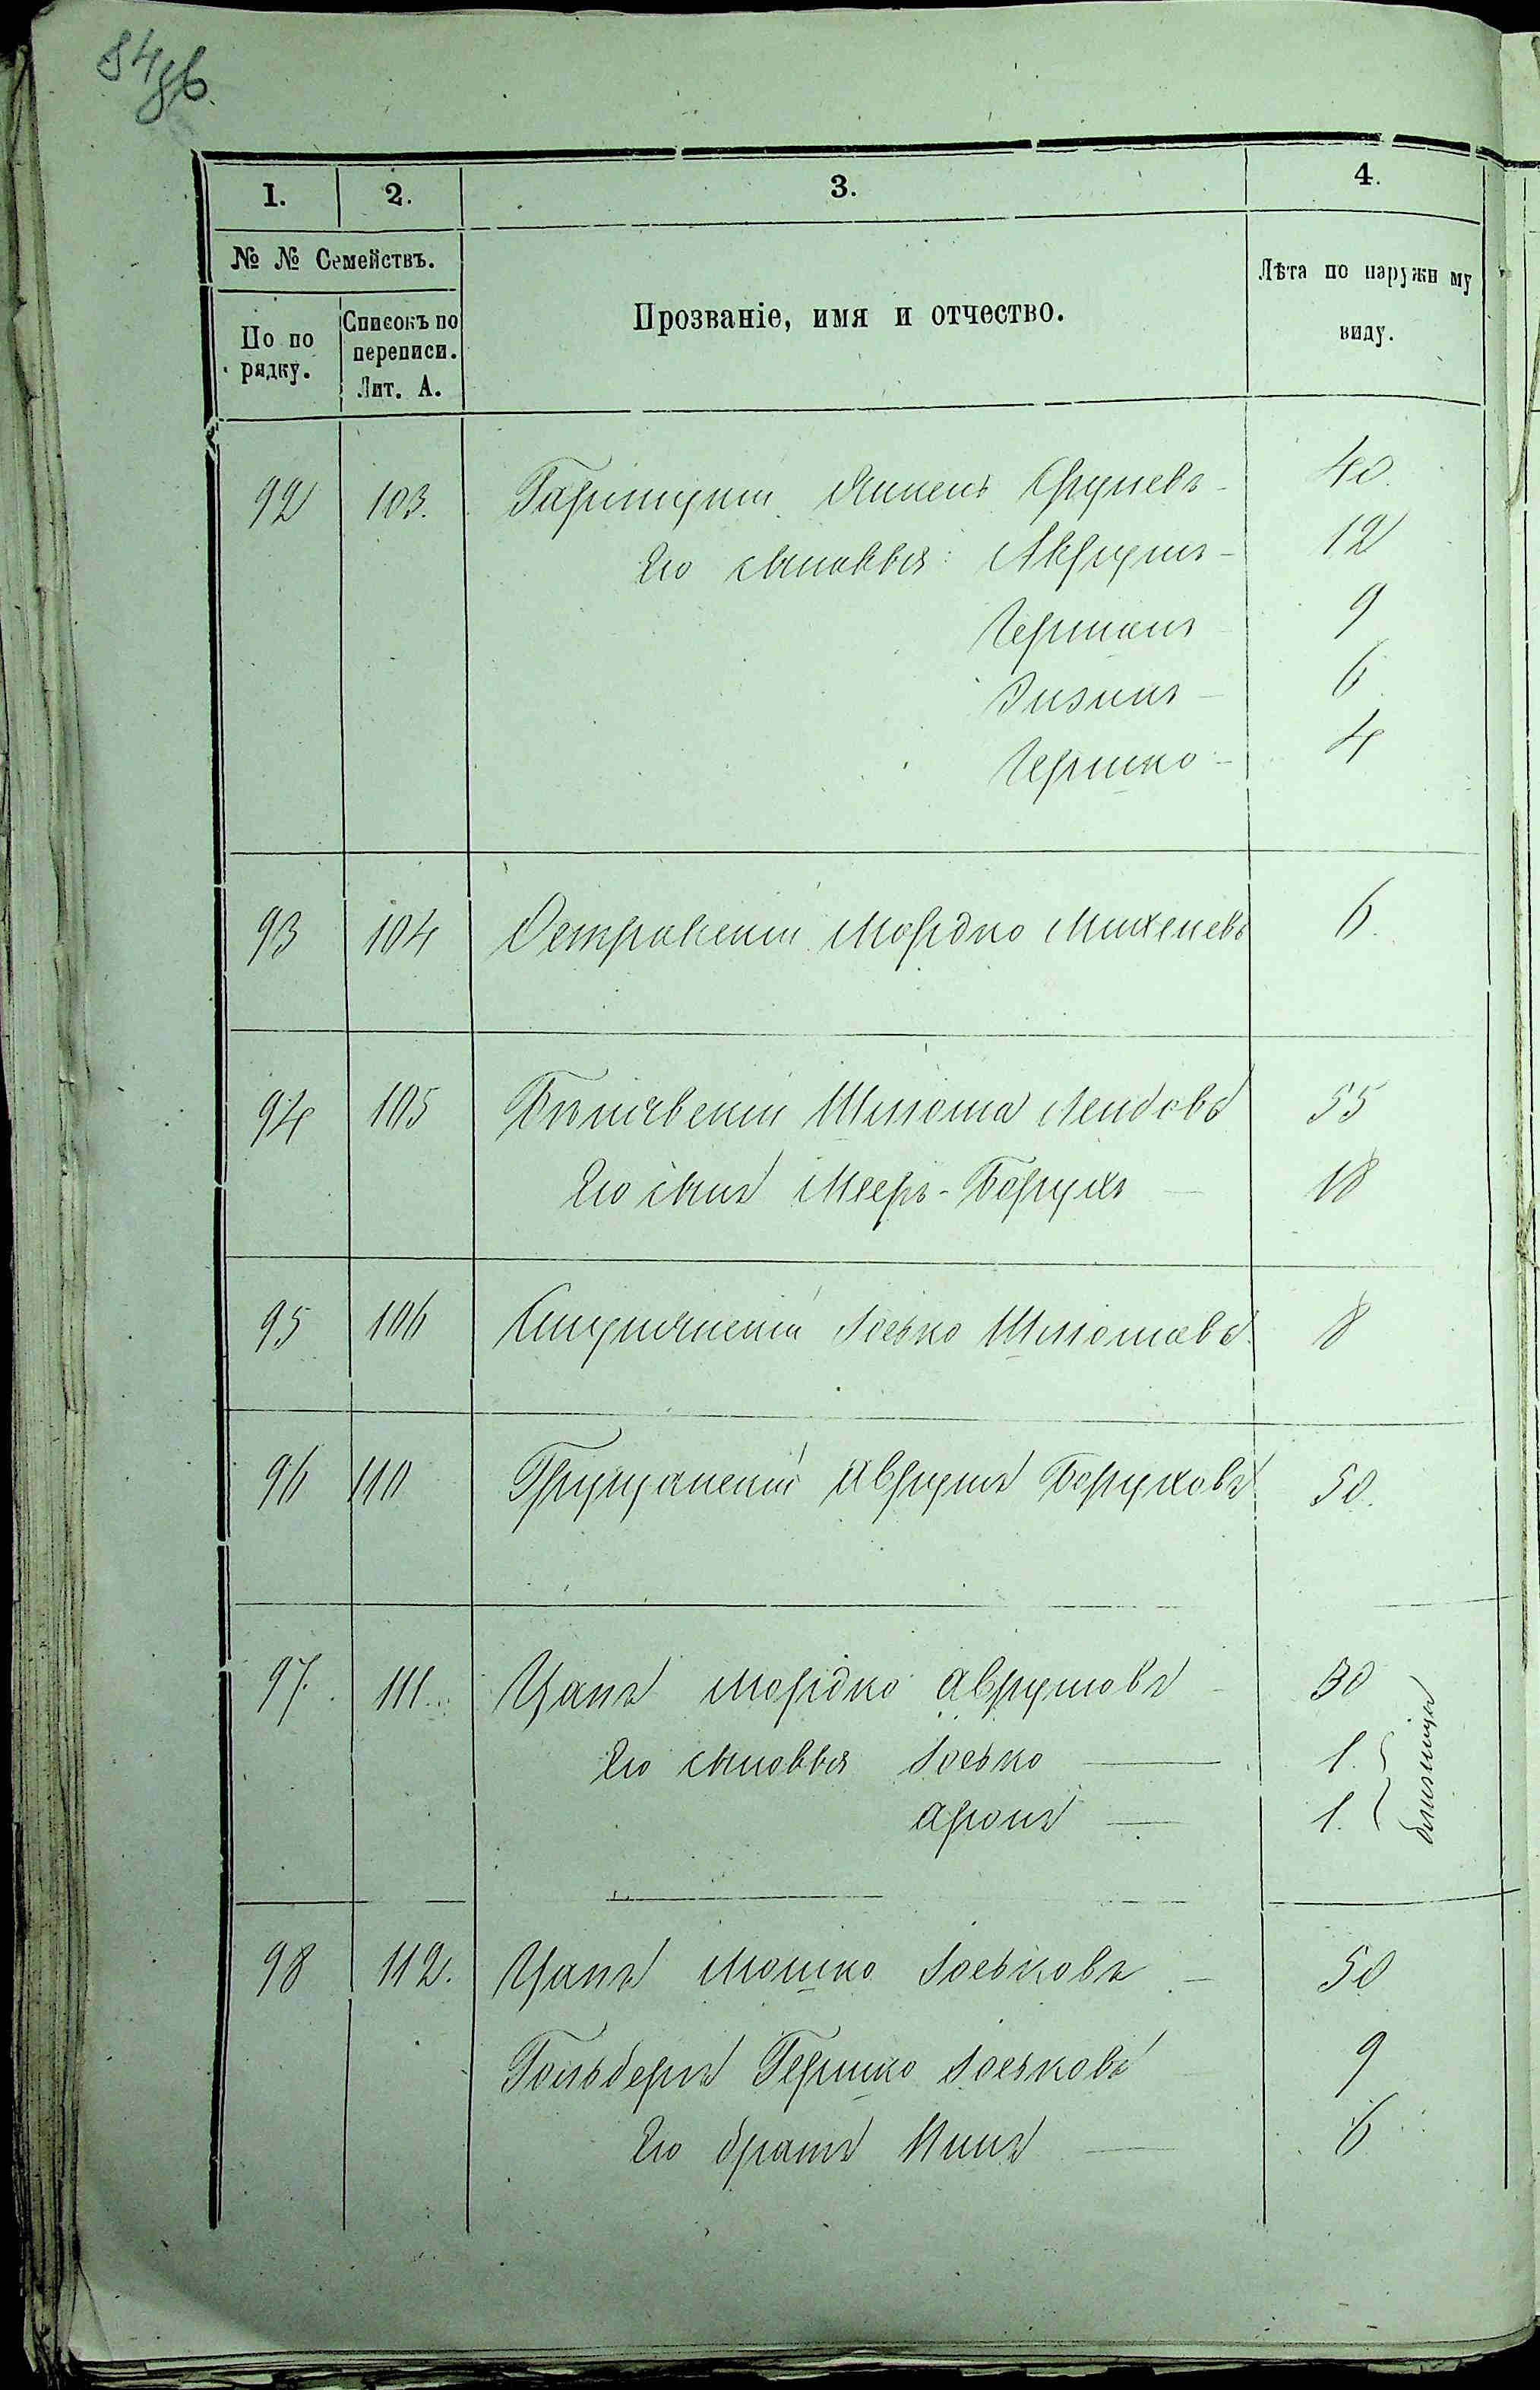 84 об.
1. 2. 3. 4.
№ № Семействъ.
По по рядку.
Списокъ по переписи. Лит. А.
Прозваніе, имя и отчество.
Лѣта по наружн му виду.
92 103. Сруневъ 40.
Его сыновья: Аврумъ 12
Германъ 9
Зизикъ 6
Гершко 4
93 104 Островскій Мордко Михелевъ 6.
94 105 Бѣлявскій Шлиома Лейбовъ 55
Его сынъ Мееръ-Борухъ 18
95 106 Іосько Шлиомавъ 8
96 110 Аврумъ Боруховъ 50.
97. 111. Цапъ Мордко Аврумовъ 30
Его сыновья Іосько 1.
Аронъ 1.
близнецы
98 112. Цапъ Мошко Іоськовъ 50
Гольберъ Гершко Іоськовъ 9
Его братъ 6